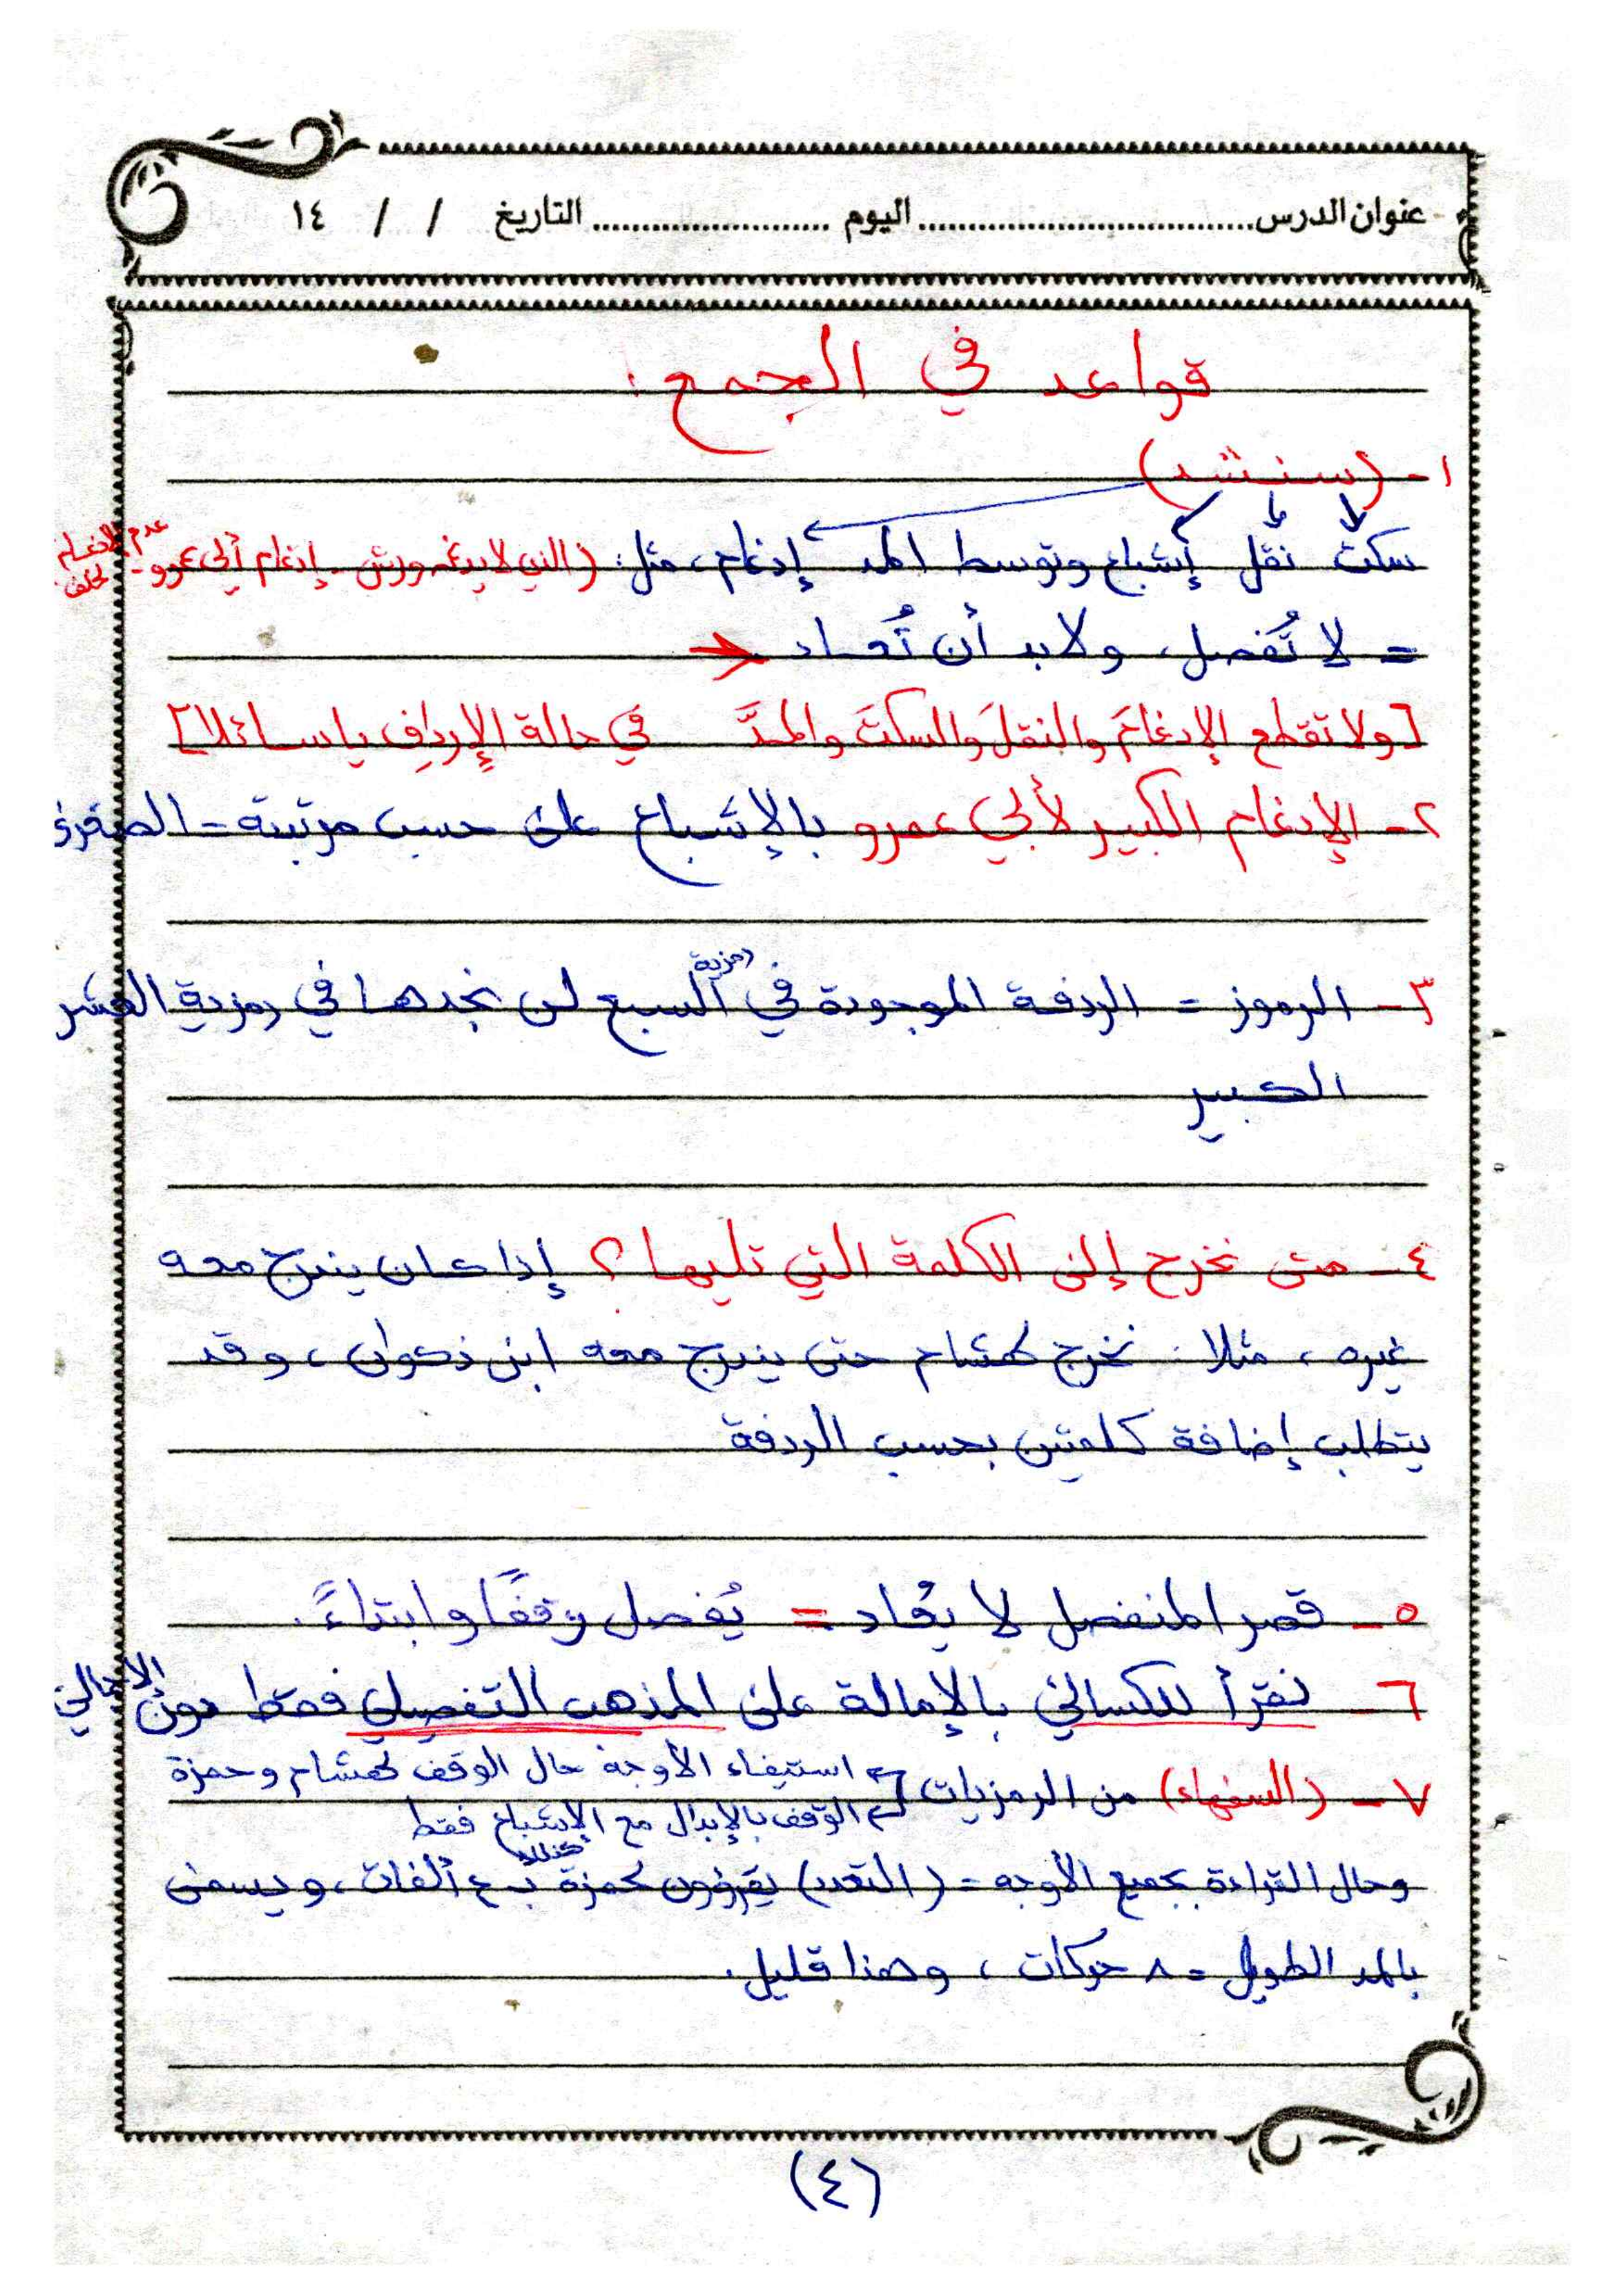 عنوان الدرس.................................اليوم ........................التاريخ / / ١٤
قواعد في الجمع:
١- (سنشد)
سكت نقل إشباع وتوسط المد إدغام، مثل: (الذي لا يدغمه ورش - إدغام أبي عمرو - عدم الإدغام لخلف
= لا تُفصل، ولابد أن تُعاد
[ولا تقطع الإدغامَ والنقلَ والسكتَ والمدَّ في حالة الإردافِ يا سائلا]
٢- الإدغام الكبير لأبي عمرو بالإشباع على حسب مرتبته - الصغرى
٣- الرموز = الردفة الموجودة في رمزية السبع لن نجدها في رمزية العشر
الكبير
٤- متى نخرج إلى الكلمة التي تليها؟ إذا كان يندرج معه
غيره، مثلا: نخرج لهشام حتى يندرج معه ابن ذكوان، وقد
يتطلب إضافة كلمتين بحسب الردفة
٥- قصر المنفصل لا يُعاد = يُفصل وقفًا وابتداءً.
٦- نقرأ للكسائي بالإمالة على المذهب التفصيلي فقط دون الإجمالي
٧- (السفهاء) من الرمزيات استيفاء الأوجه حال الوقف لهشام وحمزة
الوقف بالإبدال مع الإشباع فقط
وحال القراءة بجميع الأوجه = (التعدد) يقرؤون لحمزة كذلك بـ ٤ ألفات، ويسمى
بالمد الطويل = ٨ حركات، وهذا قليل.
(٤)